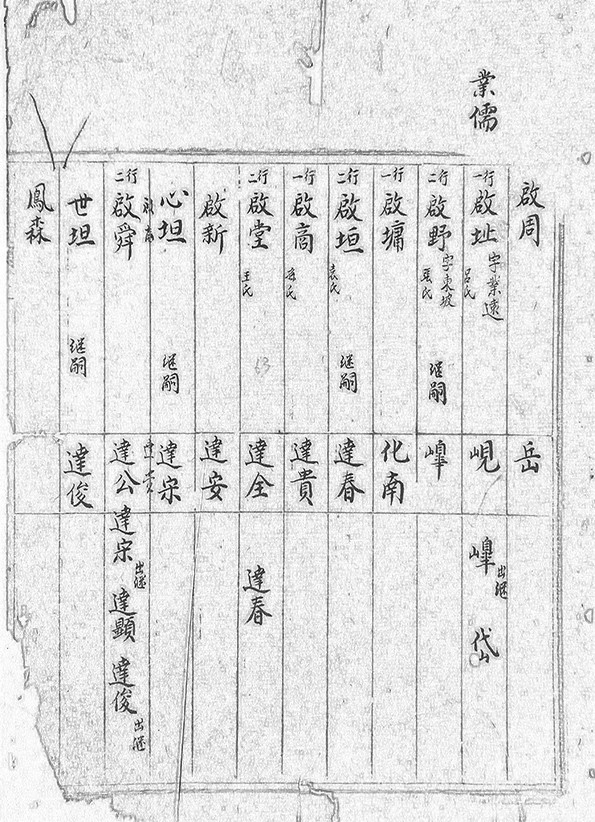 業儒
啟周
岳
行一
啟址 字業遠
呂氏
峴
嶂 出継
岱
行二
啟野 字東坡
張氏
継嗣
嶂
行一
啟墉
化南
行二
啟垣
袁氏
継嗣
達春
行一
啟高
達貴
行二
啟堂
王氏
達全
達春
啟新
達安
心坦
継嗣
達宋
行二
啟舜
達公
達宋 出継
達顯
達俊 出継
世坦
継嗣
達俊
鳳森